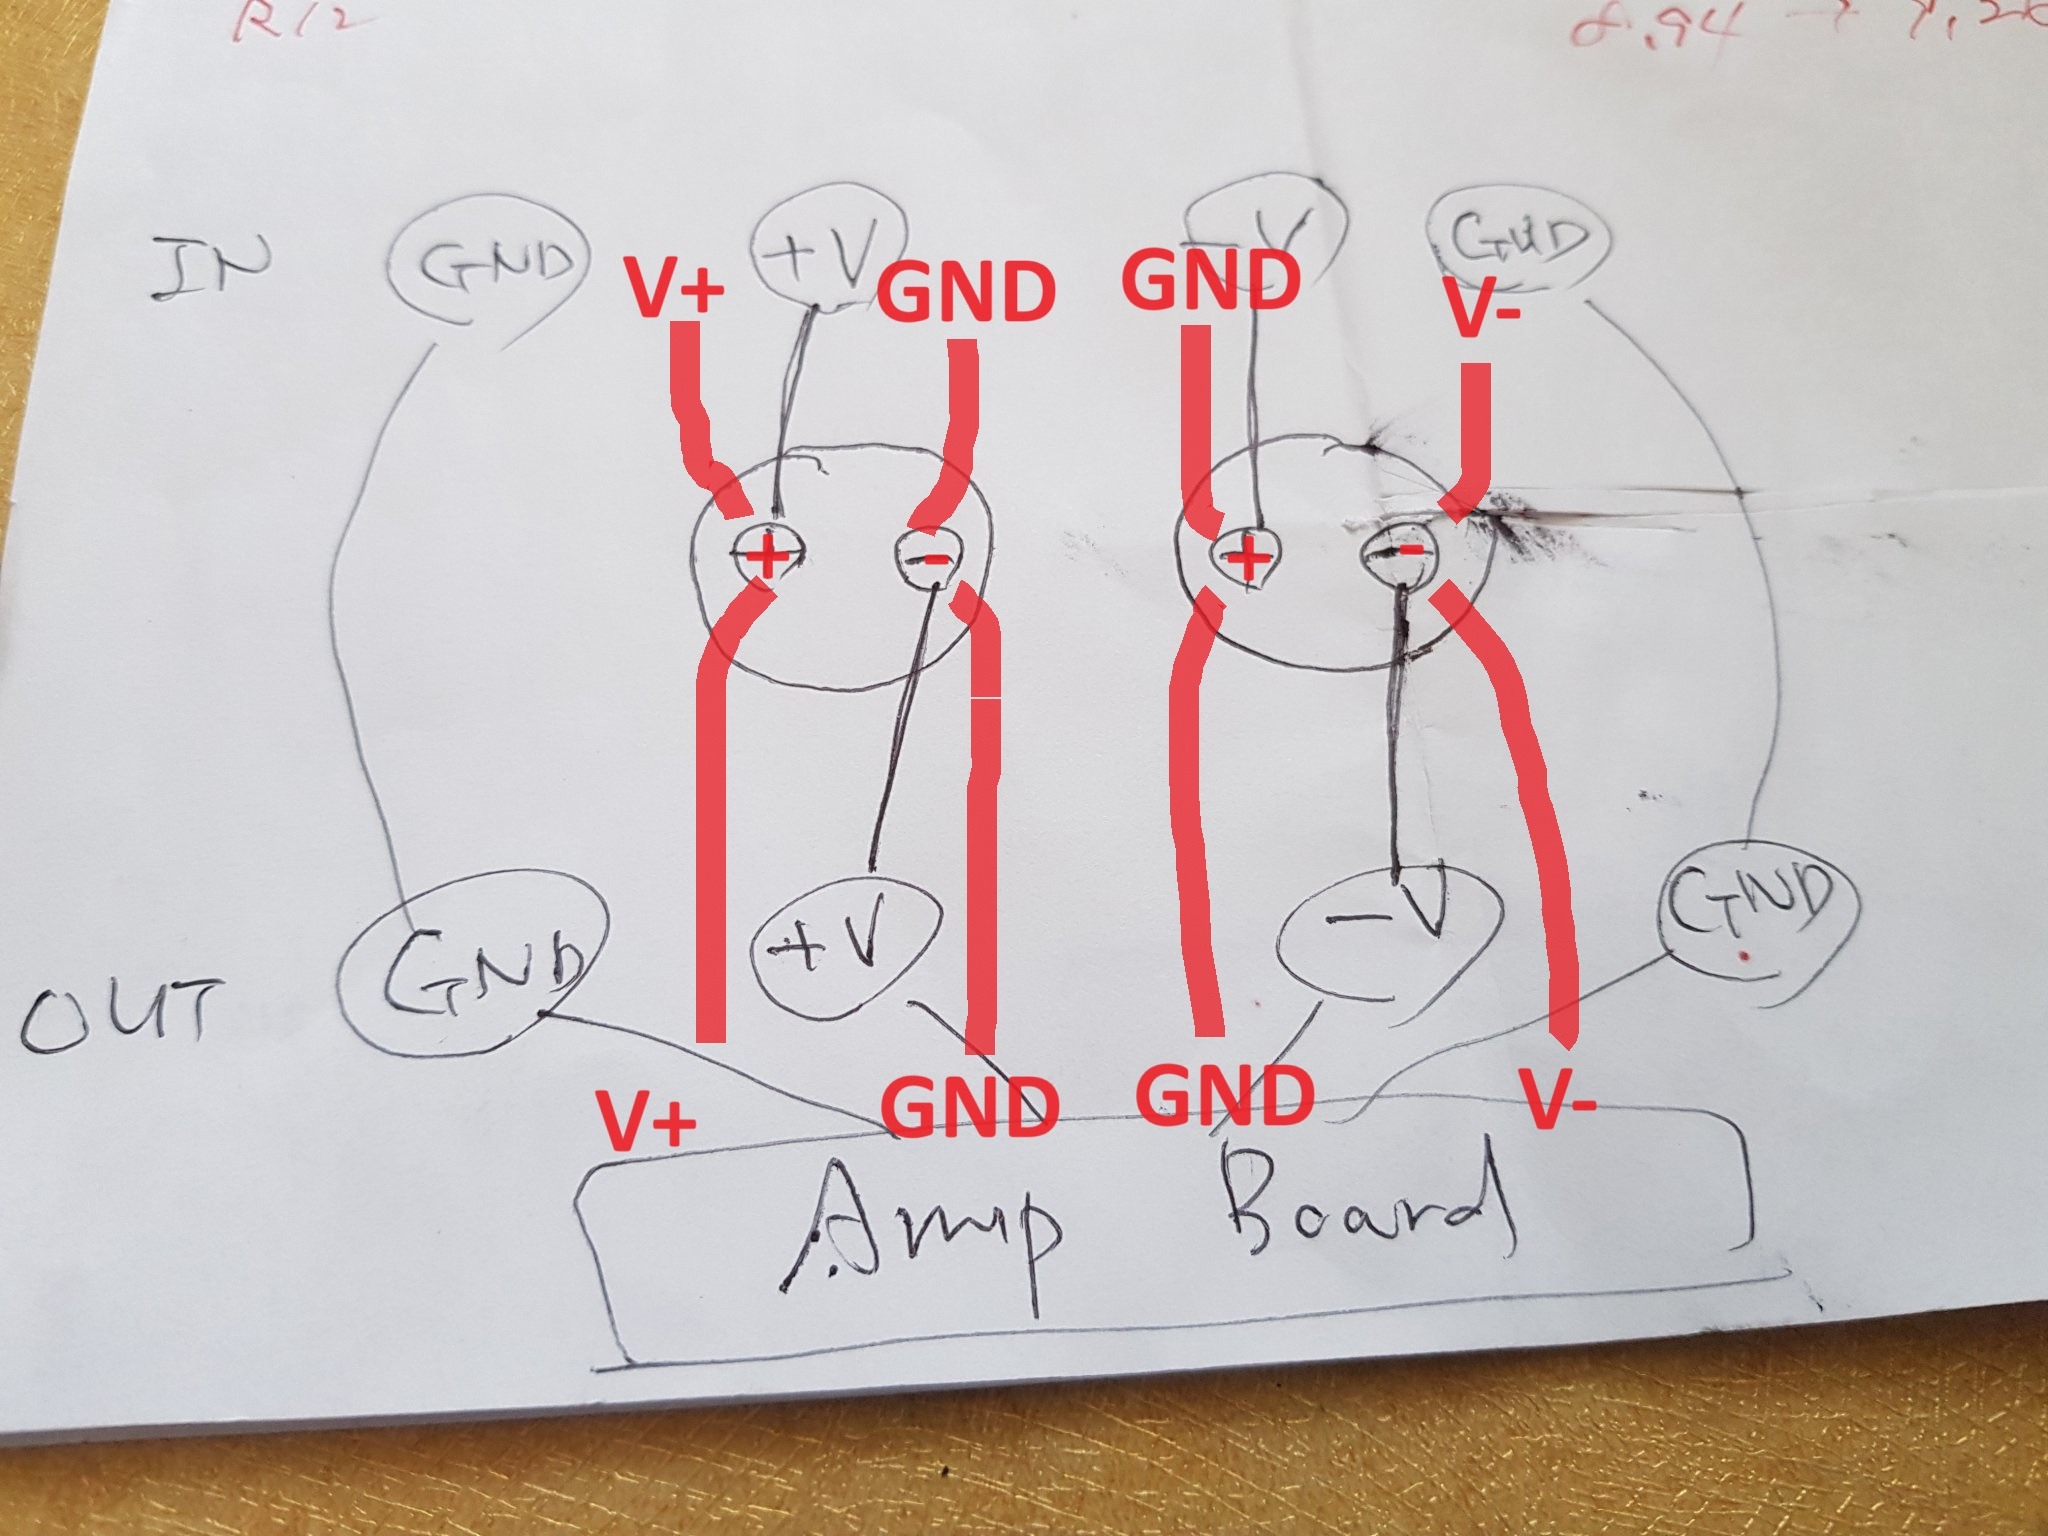 R12
8.94 →
IN GND +V -V GND
V+ GND GND V-
+ - + -
OUT GND +V -V GND
V+ GND GND V-
Amp Board